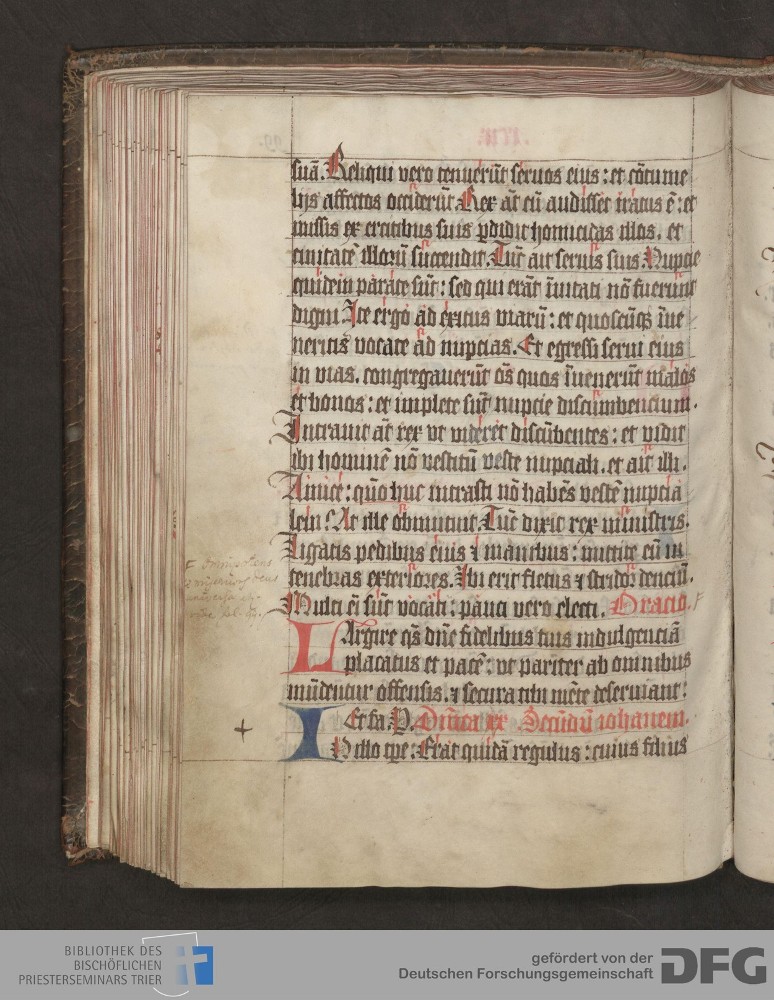 suā. Reliqui vero tenuerūt seruos eius : et cōtume
lijs affectos occiderūt. Rex āt cū audisset iratus ē : et
missis ex ercitibus suis ꝑdidit homicidas illos. et
ciuitatē illorū succendit. Tūc ait seruis suis. Nupcie
quidem parate sūt : sed qui erāt īuitati nō fuerunt
digni. Ite ergo ad exitus viarū : et quoscūqꝫ īue
neritis vocate ad nupcias. Et egressi serui eius
in vias. congregauerūt oēs quos īuenerūt malos
et bonos : et implete sūt nupcie discumbencium.
Intrauit āt rex vt videret discūbentes : et vidit
ibi hominē nō vestitū veste nupciali. et ait illi.
Amice : quō huc intrasti nō habēs vestē nupcia
lem? At ille obmutuit. Tūc dixit rex ministris.
Ligatis pedibus eius ⁊ manibus : mittite eū in
tenebras exteriores. Ibi erit fletus ⁊ stridor denciū.
Multi ei sūt vocati : pauci vero electi. Oracio.
LArgire qs dn̄e fidelibus tuis indulgenciā
placatus et pacē : vt pariter ab omnibus
mūdentur offensis. ⁊ secura tibi mēte deseruiant :
Et fa. P. Dn̄ica xx Secūdū iohannem.
IN illo tꝑe : Erat quidā regulus : cuius filius
F omnipotens
+
BIBLIOTHEK DES
BISCHÖFLICHEN
PRIESTERSEMINARS TRIER
gefördert von der
Deutschen Forschungsgemeinschaft
DFG